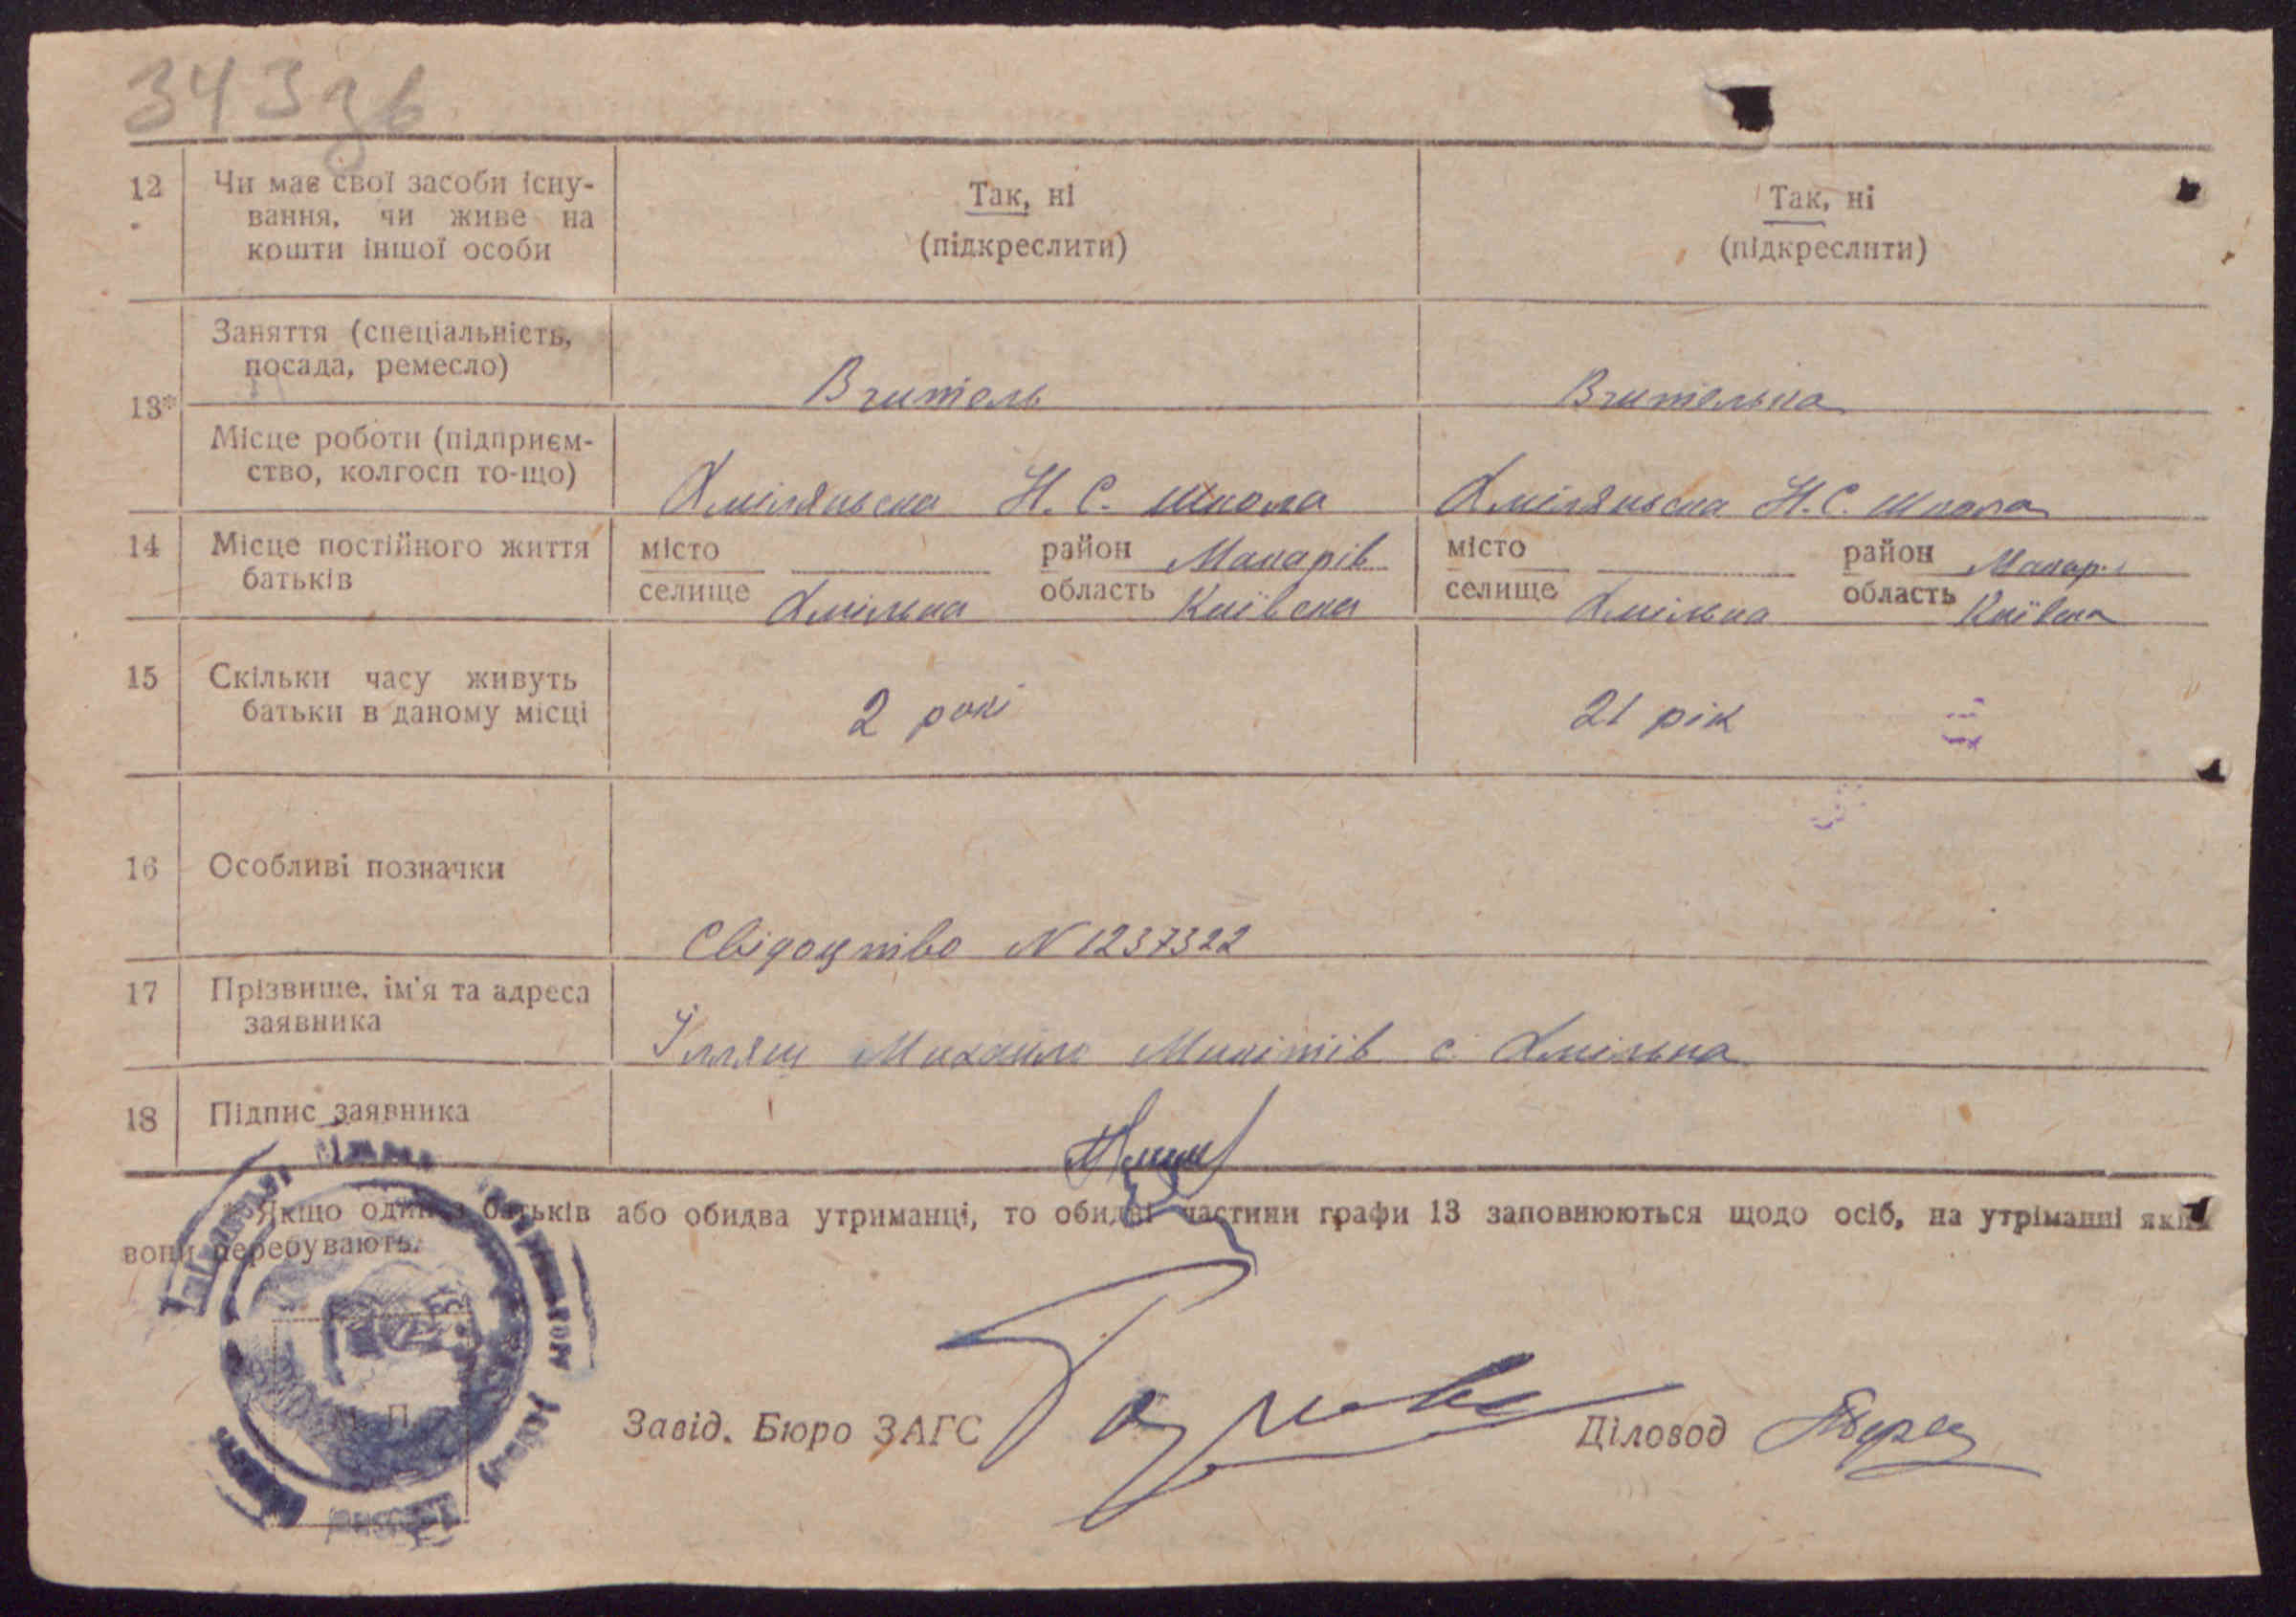 343зв
12 Чи має свої засоби існу-
вання, чи живе на
кошти іншої особи
Так, ні
(підкреслити)
Так, ні
(підкреслити)
13*
Заняття (спеціальність,
посада, ремесло)
Вчитель
Вчителька
Місце роботи (підприєм-
ство, колгосп то-що)
Хміляньска Н. С. школа
Хміляньска Н. С. школа
14 Місце постійного життя
батьків
місто район Макарів
селище Хмільна область Київска
місто район Макар.
селище Хмільна область Київска
15 Скільки часу живуть
батьки в даному місці
2 рокі
21 рік
16 Особливі позначки
Свідоцтво N 1237322
17 Прізвише, ім'я та адреса
заявника
Ілляш Михайло Микітів с. Хмільна
18 Підпис заявника
* Якщо один з батьків або обидва утриманці, то обидві частини графи 13 заповнюються щодо осіб, на утріманні яких
вони перебувають.
М. П.
Завід. Бюро ЗАГС
Діловод